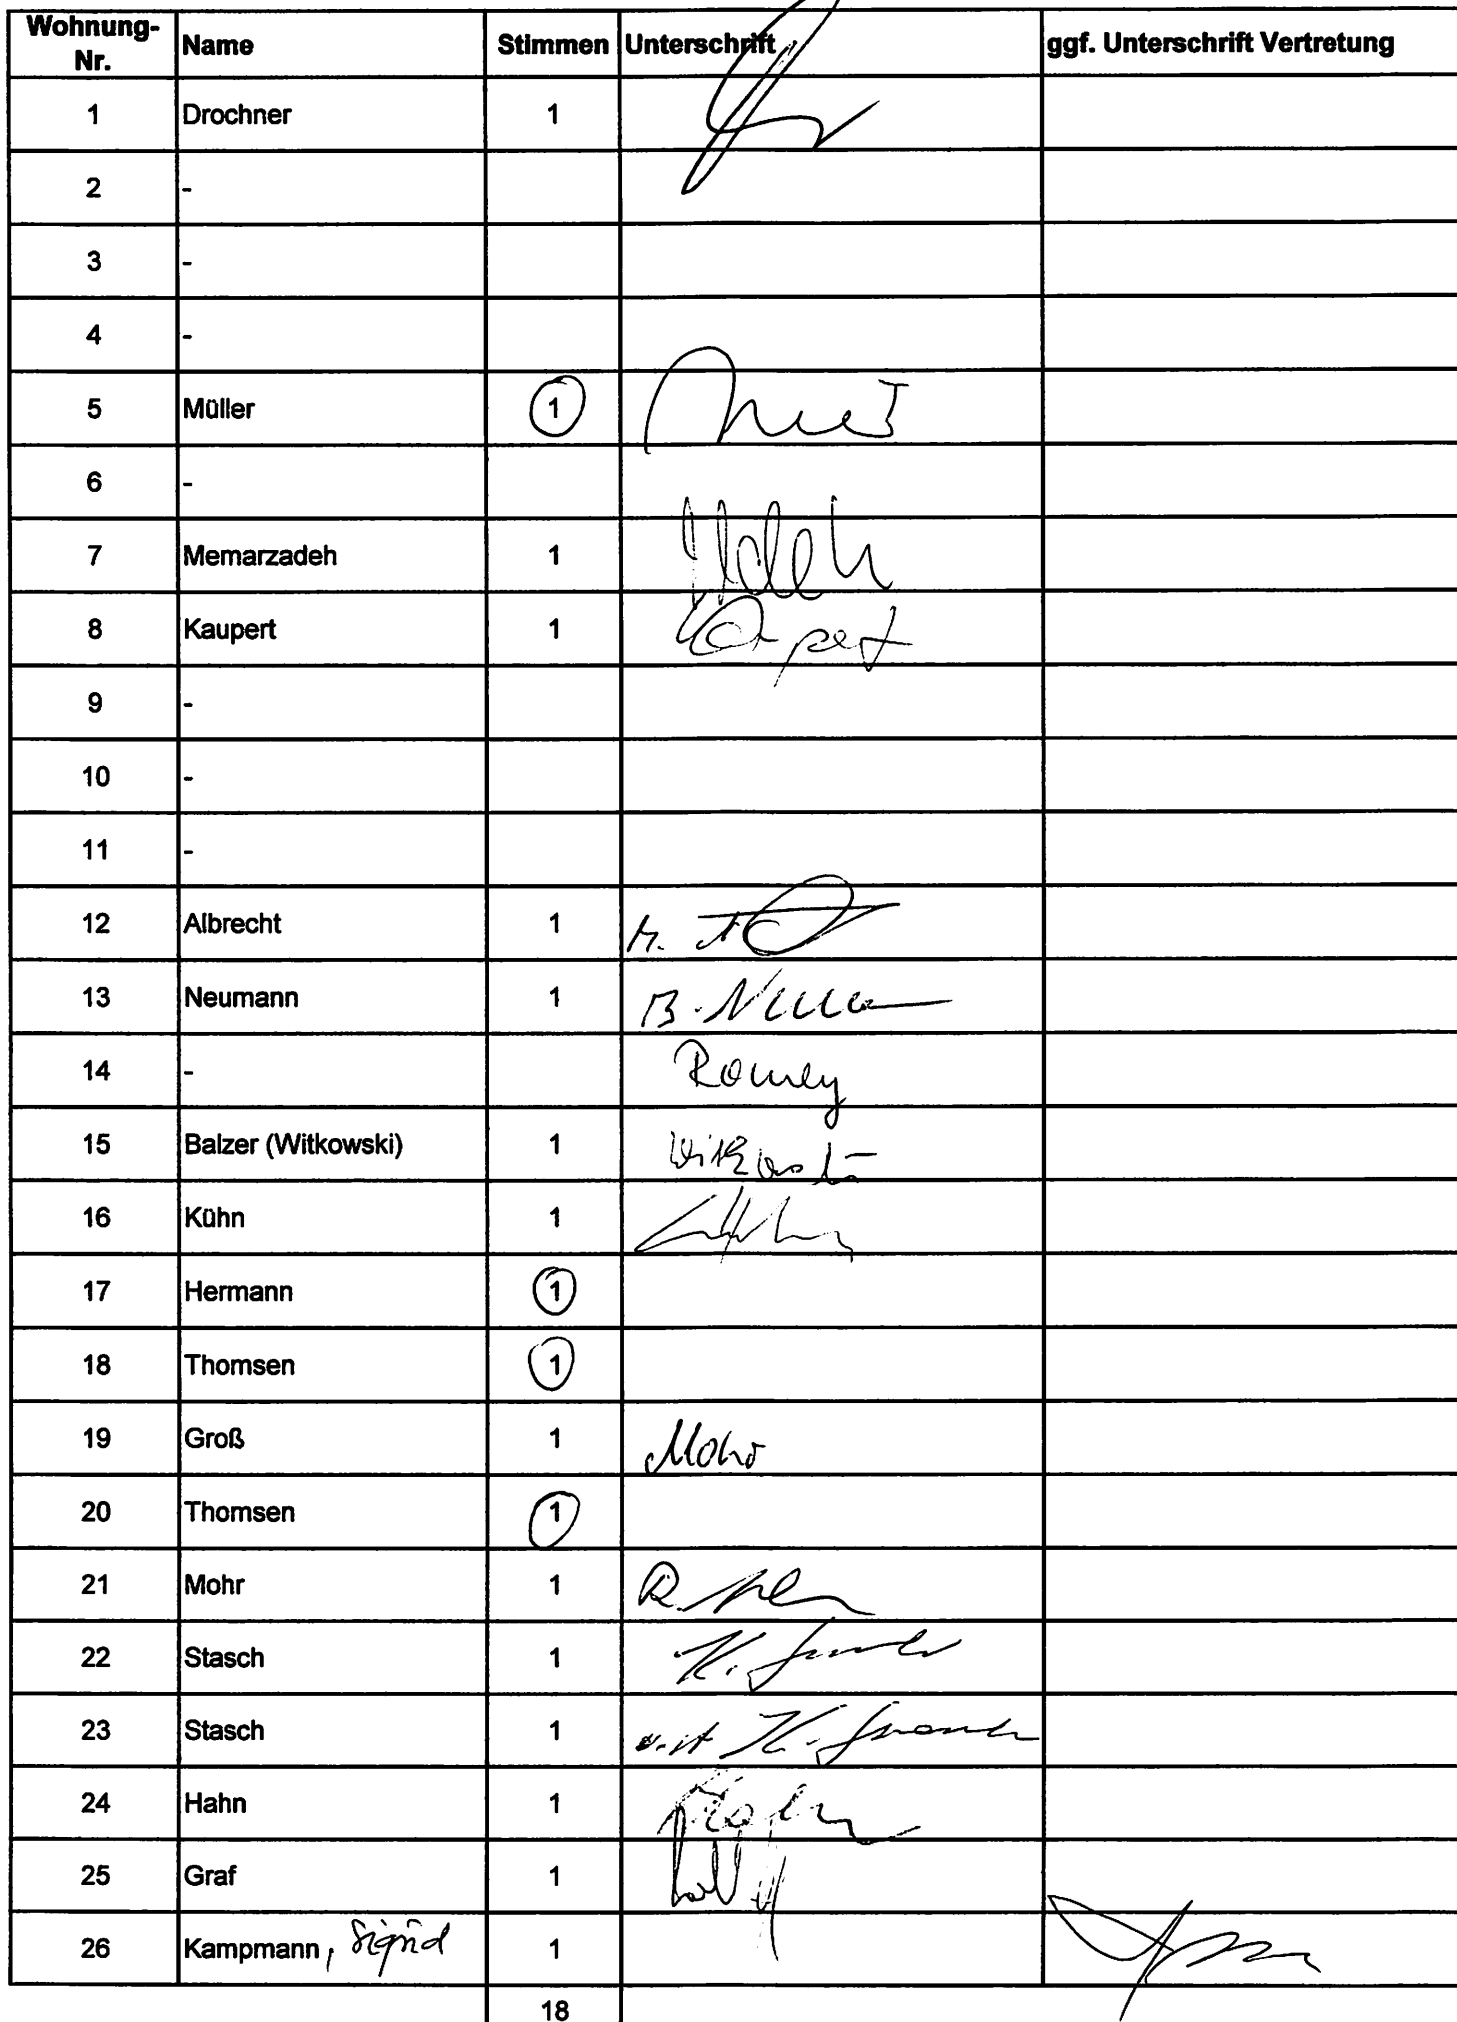 Wohnung-Nr. Name Stimmen Unterschrift ggf. Unterschrift Vertretung
1 Drochner 1
2 -
3 -
4 -
5 Müller 1
6 -
7 Memarzadeh 1
8 Kaupert 1
9 -
10 -
11 -
12 Albrecht 1
13 Neumann 1 B. Neumann
14 - Romey
15 Balzer (Witkowski) 1 Witkowski
16 Kühn 1
17 Hermann 1
18 Thomsen 1
19 Groß 1 Mohr
20 Thomsen 1
21 Mohr 1
22 Stasch 1
23 Stasch 1
24 Hahn 1 Hahn
25 Graf 1
26 Kampmann, Sigrid 1
18